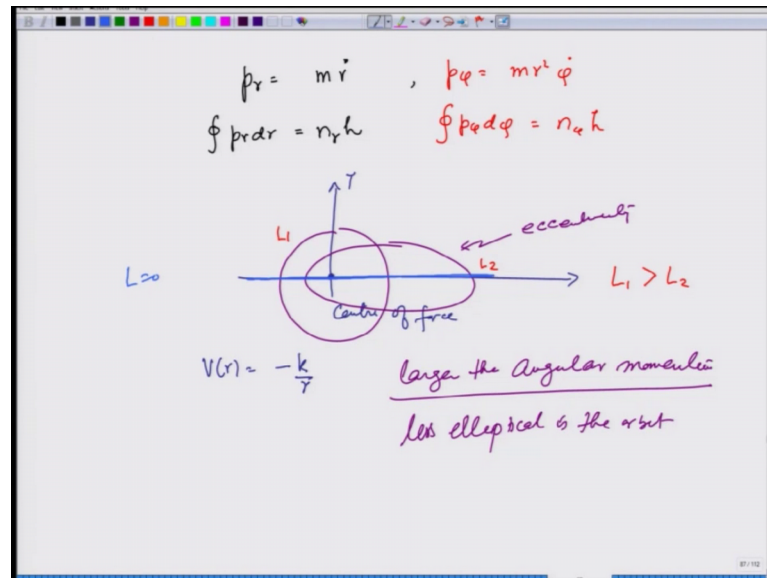 pr = mṙ , pφ = mr² φ̇
∮ prdr = nrh ∮ pφdφ = nφh
Y
eccentricity
L1
L=0
L2
L1 > L2
Centre of force
V(r) = -k/r
larger the angular momentum
less elliptical is the orbit
87/112